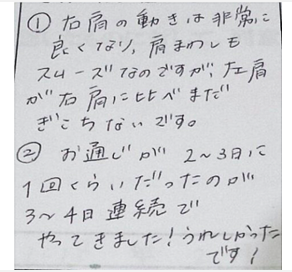 ①右肩の動きは非常に
良くなり、肩まわしも
スムーズなのですが、左肩
が右肩に比べまだ
ぎこちないです。
② お通じが 2～3日に
1回くらいだったのが
3～4日連続で
やってきました！うれしかった
です！